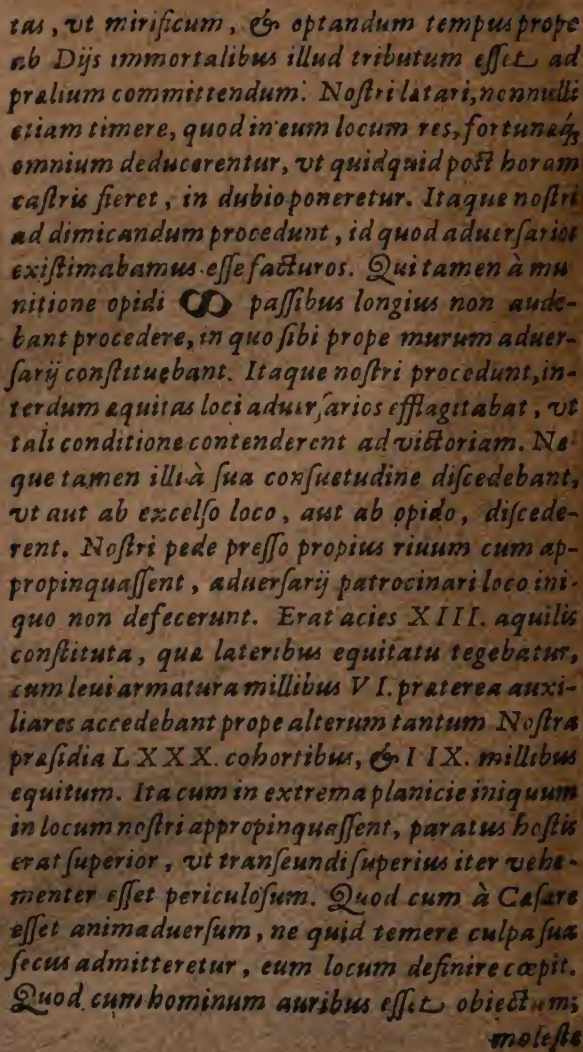 tas, vt mirificum, & optandum tempus prope
ab Dijs immortalibus illud tributum esset ad
prælium committendum. Nostri lætari, nonnulli
etiam timere, quod in eum locum res, fortunæq́;
omnium deducerentur, vt quidquid post horam
castris fieret, in dubio poneretur. Itaque nostri
ad dimicandum procedunt, id quod aduersarios
existimabamus esse facturos. Qui tamen à mu
nitione opidi ↀ passibus longius non aude-
bant procedere, in quo sibi prope murum aduer-
sarij constituebant. Itaque nostri procedunt, in-
terdum æquitas loci aduersarios efflagitabat, vt
tali conditione contenderent ad victoriam. Ne-
que tamen illi à sua consuetudine discedebant,
vt aut ab excelso loco, aut ab opido, discede-
rent. Nostri pede presso propius riuum cum ap-
propinquassent, aduersarij patrocinari loco ini-
quo non defecerunt. Erat acies XIII. aquilis
constituta, quæ lateribus equitatu tegebatur,
cum leui armatura millibus VI. præterea auxi-
liares accedebant prope alterum tantum Nostra
præsidia LXXX. cohortibus, & IIX. millibus
equitum. Ita cum in extrema planicie iniquum
in locum nostri appropinquassent, paratus hostis
erat superior, vt transeundi superius iter vehe-
menter esset periculosum. Quod cum à Cæsare
esset animaduersum, ne quid temere culpa sua
secus admitteretur, eum locum definire cœpit.
Quod cum hominum auribus esset obiectum;
moleste